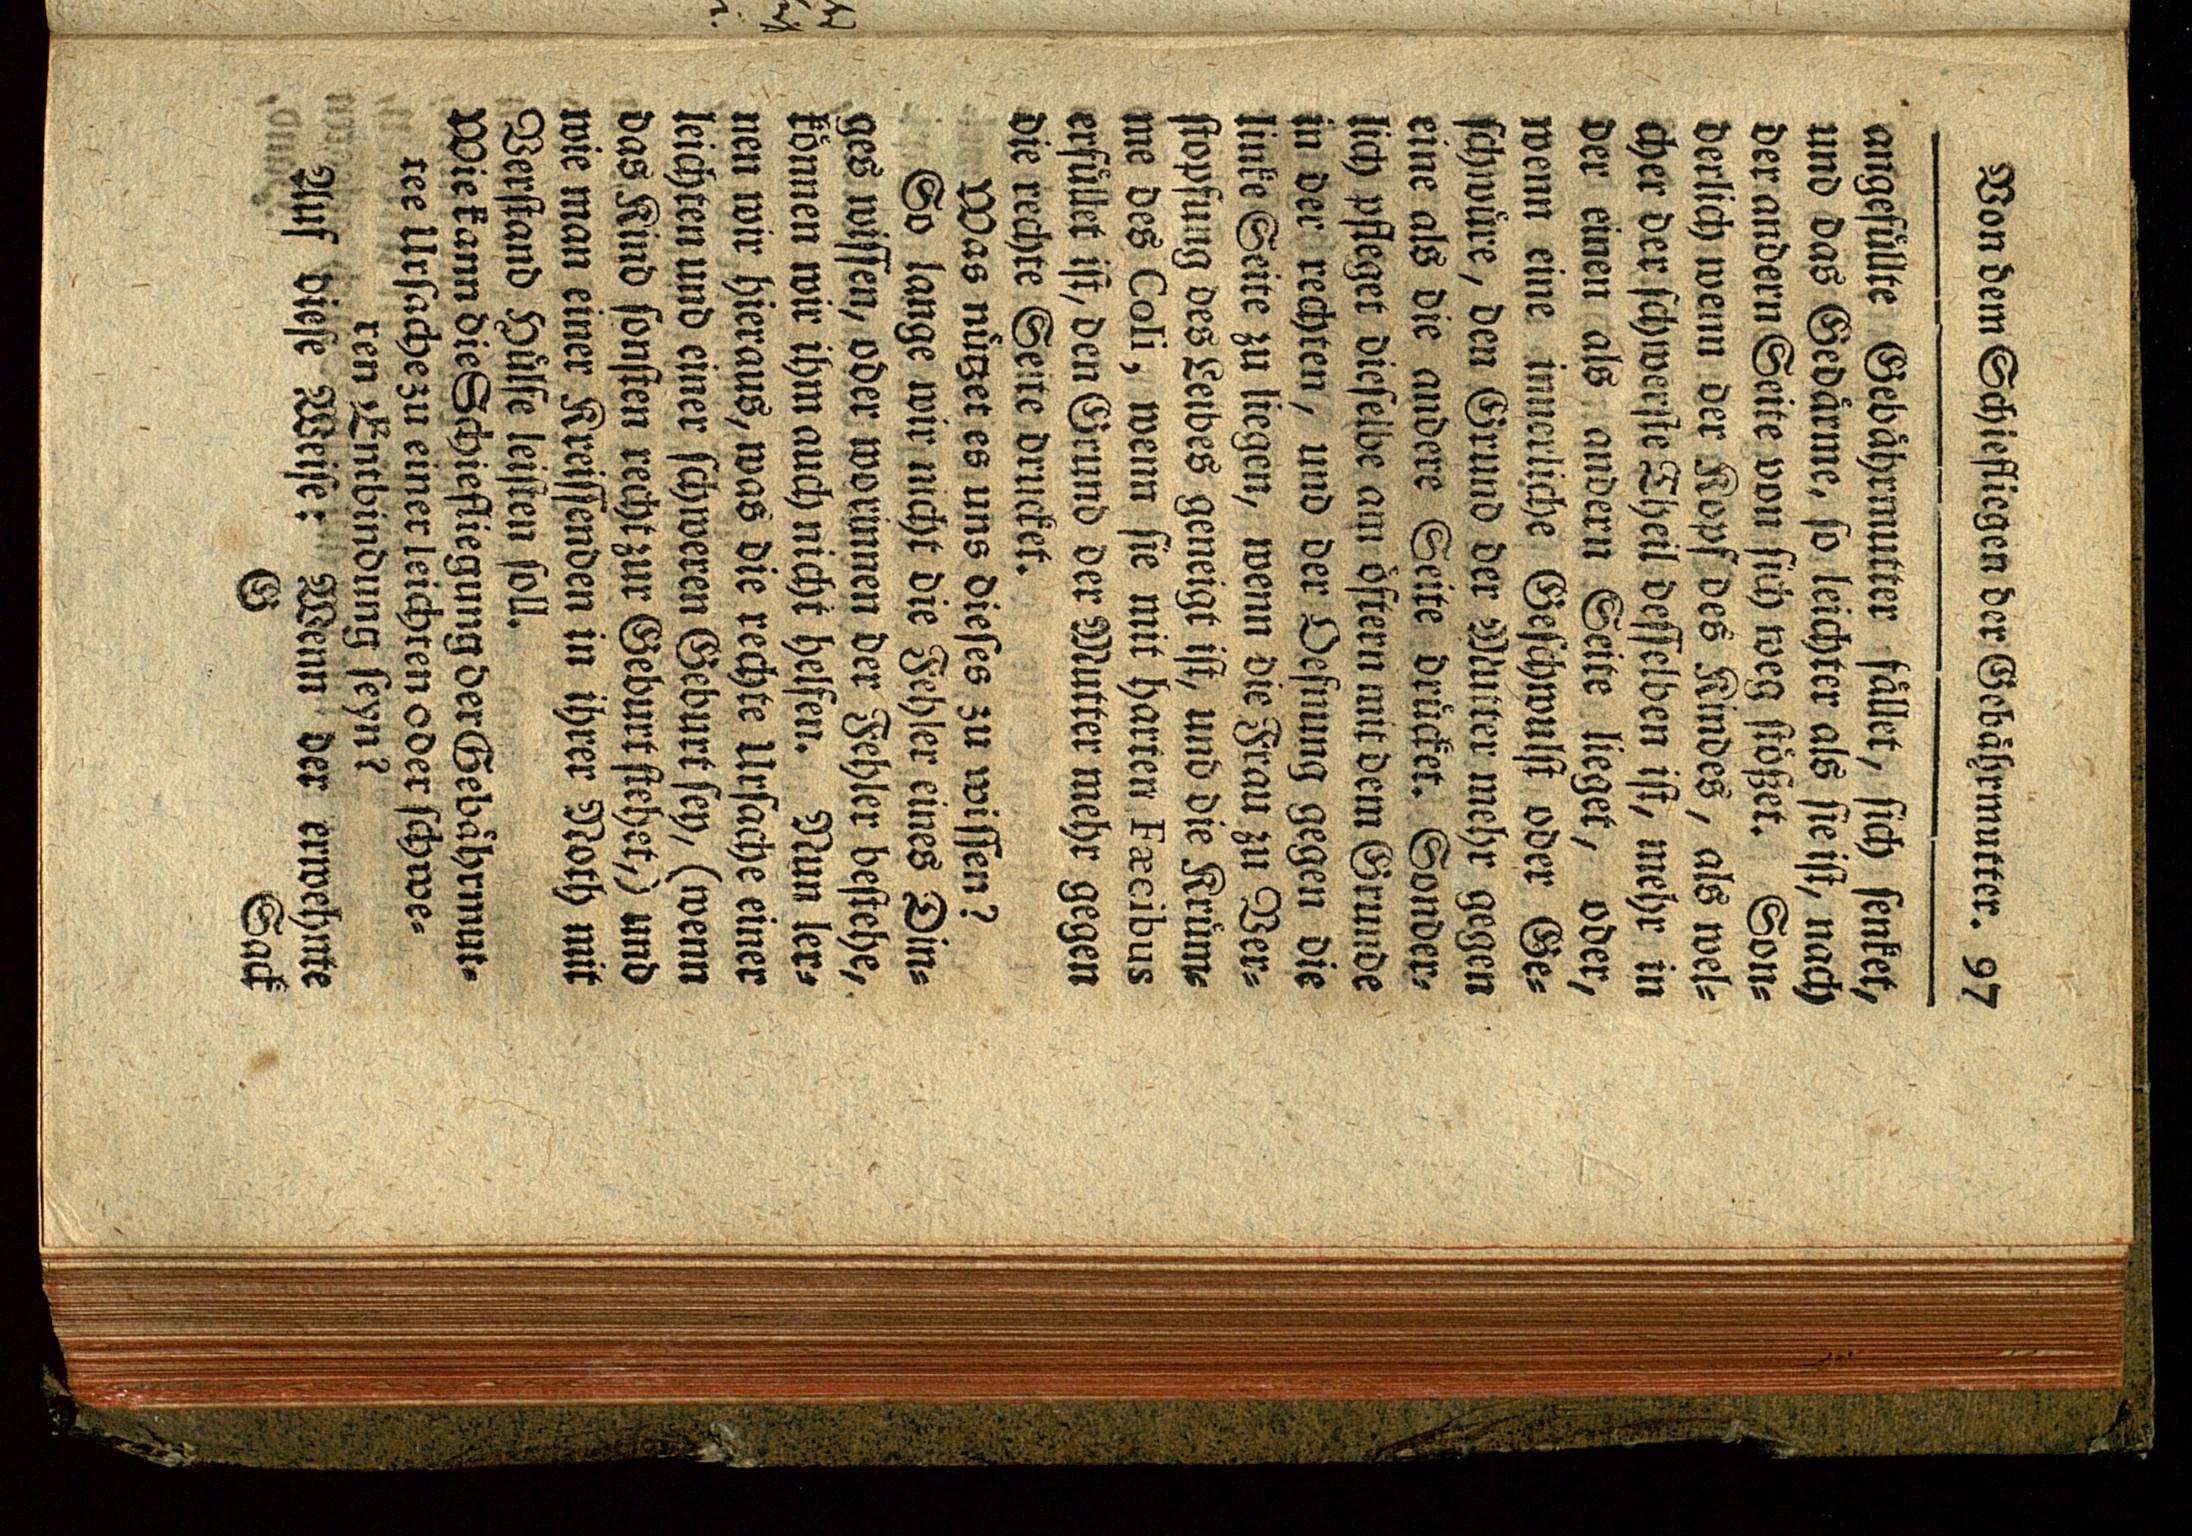 Von dem Schiefliegen der Gebährmutter. 97
angefüllte Gebährmutter fället, sich senket,
und das Gedärme, so leichter als sie ist, nach
der andern Seite von sich weg stößet. Son⸗
derlich wenn der Kopf des Kindes, als wel⸗
cher der schwerste Theil desselben ist, mehr in
der einen als andern Seite lieget, oder,
wenn eine innerliche Geschwulst oder Ge⸗
schwüre, den Grund der Mutter mehr gegen
eine als die andere Seite drücket. Sonder⸗
lich pfleget dieselbe am öftern mit dem Grunde
in der rechten, und der Oefnung gegen die
linke Seite zu liegen, wenn die Frau zu Ver⸗
stopfung des Leibes geneigt ist, und die Krüm⸗
me des Coli, wenn sie mit harten Fæcibus
erfüllet ist, den Grund der Mutter mehr gegen
die rechte Seite drucket.
Was nützet es uns dieses zu wissen?
So lange wir nicht die Fehler eines Din⸗
ges wissen, oder worinnen der Fehler bestehe,
können wir ihm auch nicht helfen. Nun ler⸗
nen wir hieraus, was die rechte Ursache einer
leichten und einer schweren Geburt sey, (wenn
das Kind sonsten recht zur Geburt stehet,) und
wie man einer Kreissenden in ihrer Noth mit
Verstand Hülfe leisten soll.
Wie kann die Schiefliegung der Gebährmut⸗
ter Ursache zu einer leichten oder schwe⸗
ren Entbindung seyn?
Auf diese Weise: Wenn der erwehnte
G
Sack